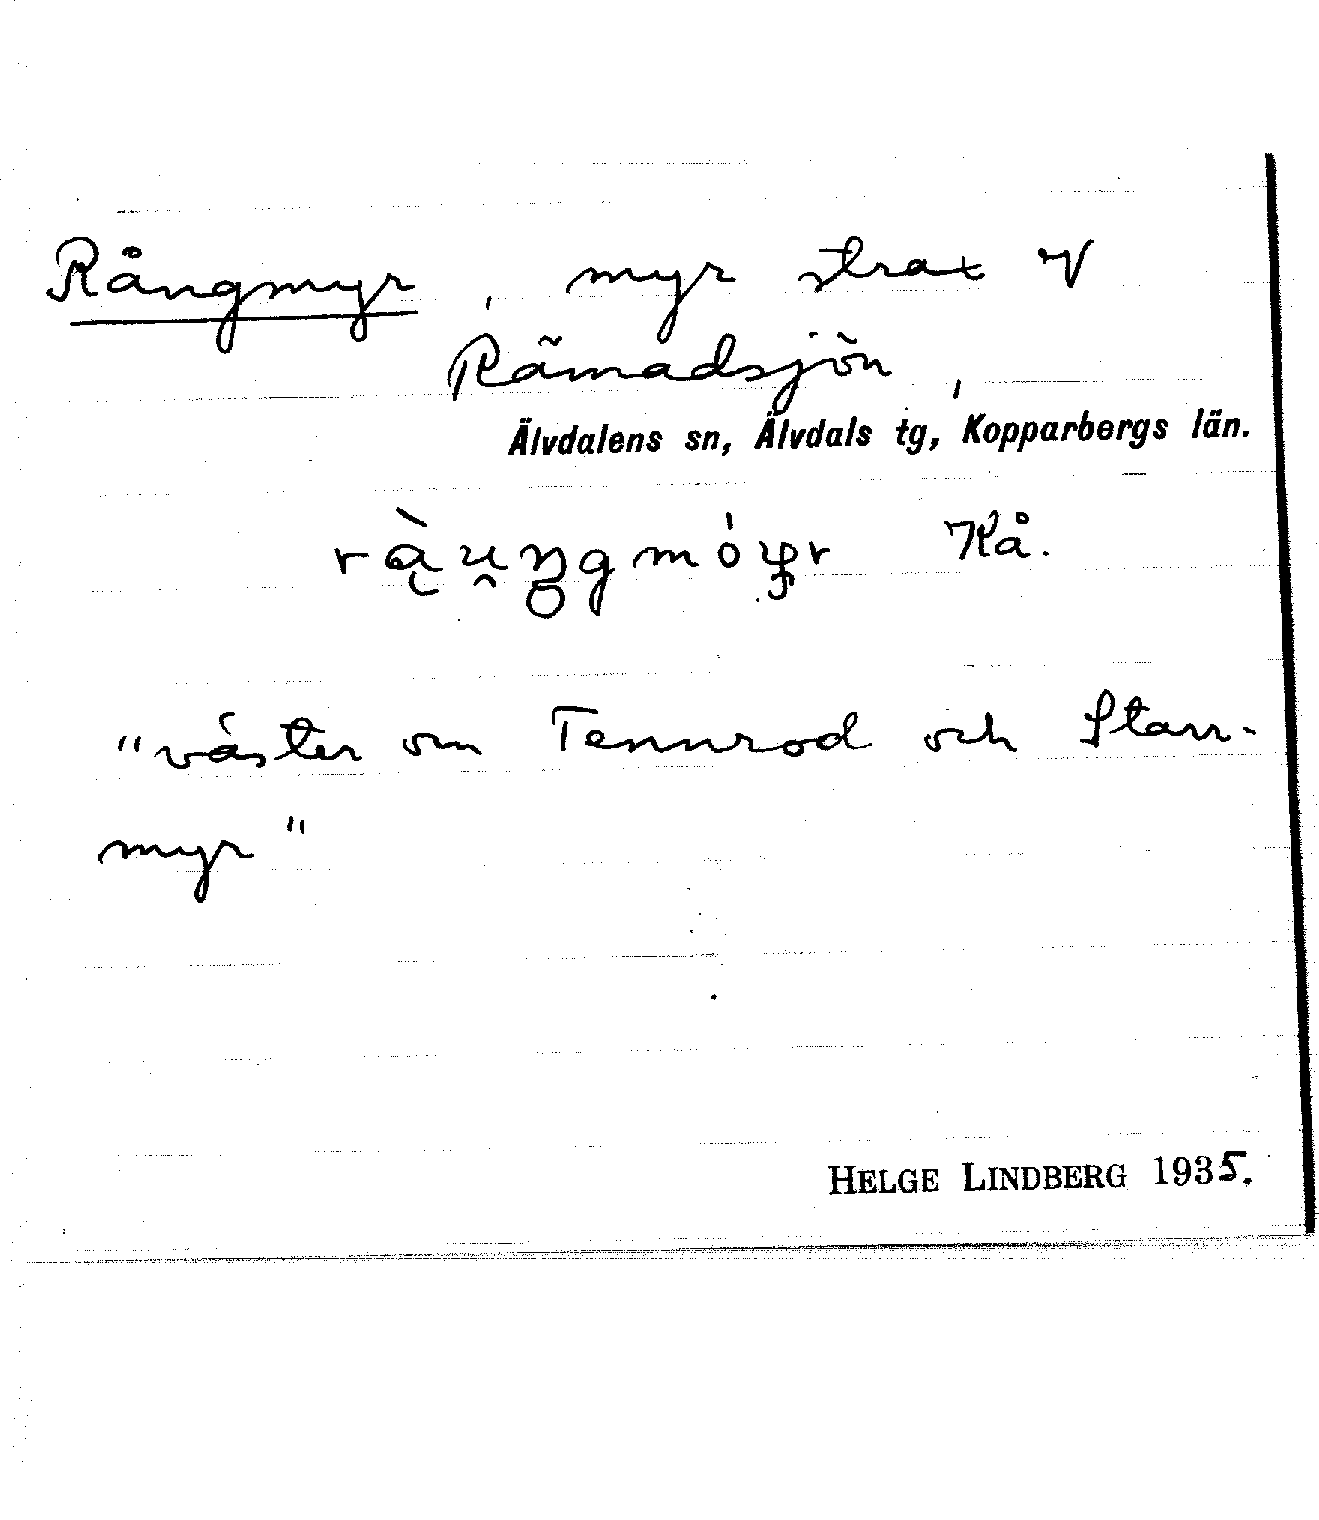 Rångmyr, myr strax V
Rämadsjön,
Älvdalens sn, Älvdals tg, Kopparbergs län.
Kå.
"väster om Tennrod och Starr-
myr"
HELGE LINDBERG 1935.